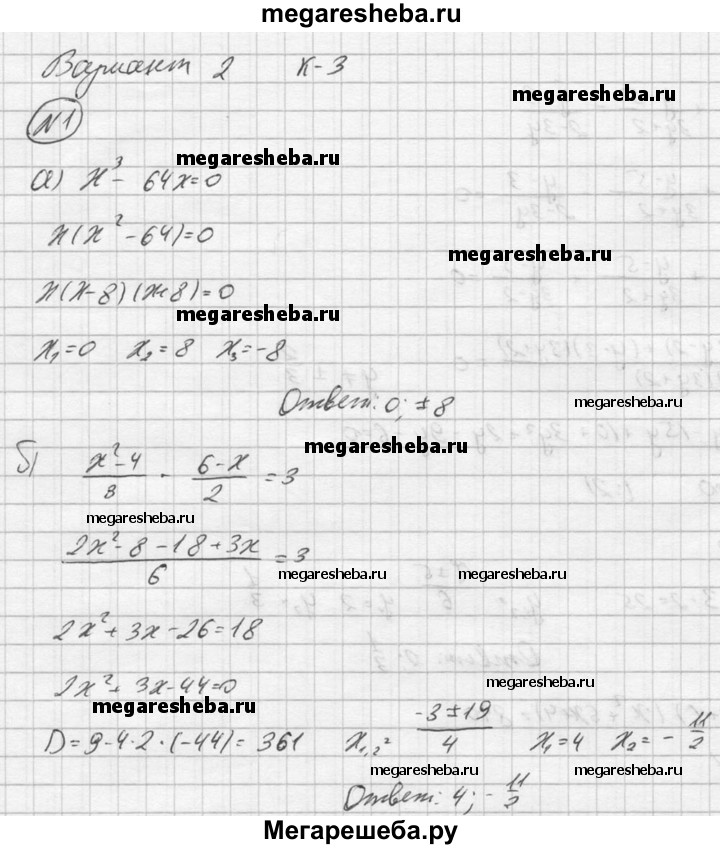 megaresheba.ru
Вариант 2 К-3
megaresheba.ru
№1
megaresheba.ru
а) x³ - 64x = 0
x(x² - 64) = 0
megaresheba.ru
x(x-8)(x+8) = 0
megaresheba.ru megaresheba.ru
x₁ = 0 x₂ = 8 x₃ = -8
Ответ: 0; ±8
megaresheba.ru
megaresheba.ru
б) (x² - 4)/3 - (6 - x)/2 = 3
megaresheba.ru megaresheba.ru
(2x² - 8 - 18 + 3x)/6 = 3
megaresheba.ru megaresheba.ru
2x² + 3x - 26 = 18
2x² + 3x - 44 = 0
megaresheba.ru
megaresheba.ru
D = 9 - 4 · 2 · (-44) = 361 x₁,₂ = (-3 ± 19)/4 x₁ = 4 x₂ = - 11/2
megaresheba.ru megaresheba.ru
Ответ: 4; - 11/2
Мегарешеба.ру